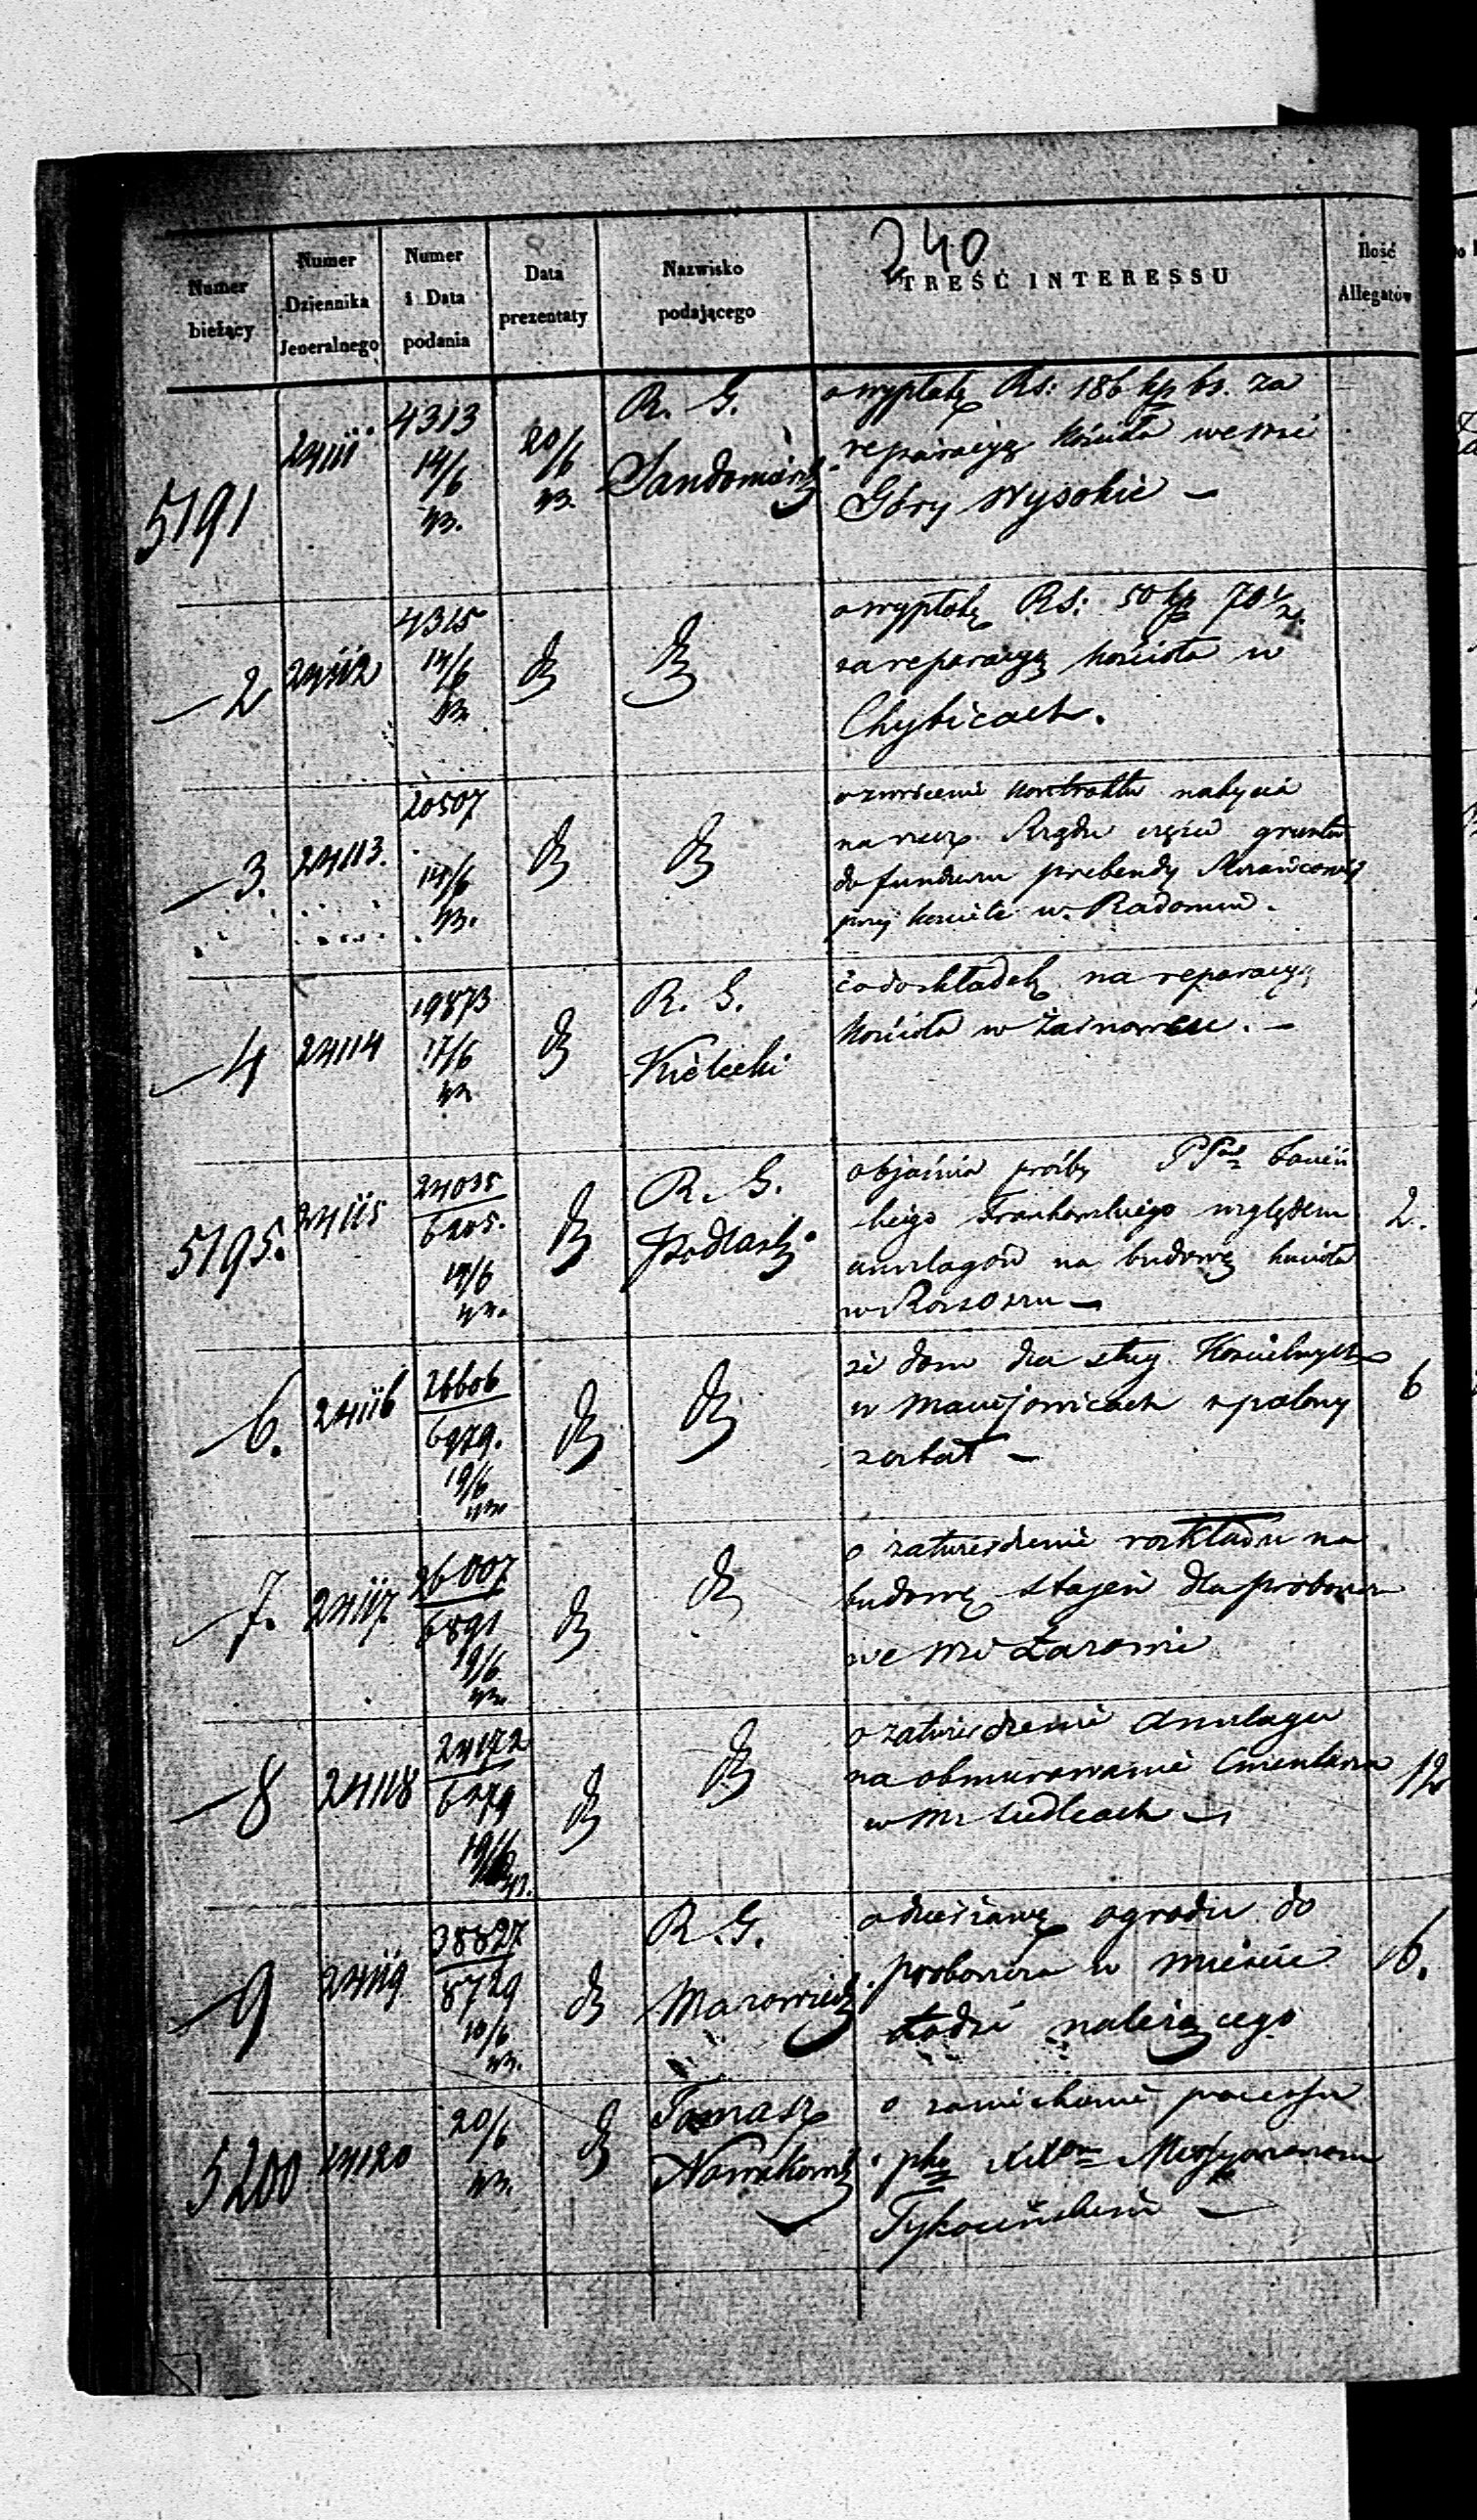 240
Numer bieżący
Numer Dziennika Jeneralnego
Numer i Data podania
Data prezentaty
Nazwisko podającego
TREŚĆ INTERESSU
Ilość Allegatów
5191
24111
4313
14/6
43.
20/6
43.
R. G.
Sandomirsk
o wypłatę Rs: 186 kp 6s. za
reparacyą kościoła we wsi
Góry Wysokie –
2
24112
4315
14/6
43
o wypłatę Rs: 50 kp 70 1/2
za reparacyą kościoła w
Chybicach.
3.
24113.
20507
14/6
43.
o zwrócenie kontraktu nabycia
na rzecz Rządu części gruntu
do funduszu prebendy
przy kościele w Radomiu.
4
24114
19873
17/6
43
R. G.
Kielecki
co do składek na reparacyą
kościoła w Żarnowcu. –
5195.
24115
24035
6205.
14/6
43.
R. G.
Podlask
objaśnia prośbę
względem
anszlagów na budowę kościoła
w Rossoszu –
2.
6.
24116
26606
6979.
19/6
43
że dom dla sług Kościelnych
w Maciejowicach spalony
został –
6
7.
24117
26007
6891
19/6
43
o zatwierdzenie rozkładu na
budowę stajen dla proboszcza
we wsi Żarowie
8
24118
24172
6479
19/6
43.
o zatwierdzenie Anszlagu
na obmurowanie Cmentarza
w Mr Siedlcach –
12
9
24119
38827
8729
10/6
43.
R. G.
Mazowieck
o dzierżawę ogrodu do
probostwa w mieście
Łodzi należącego
6.
5200
24120
20/6
43.
Tomasz
Nowakowsk
o zaniechanie processu
Missyonarzom
Tykocińskim –